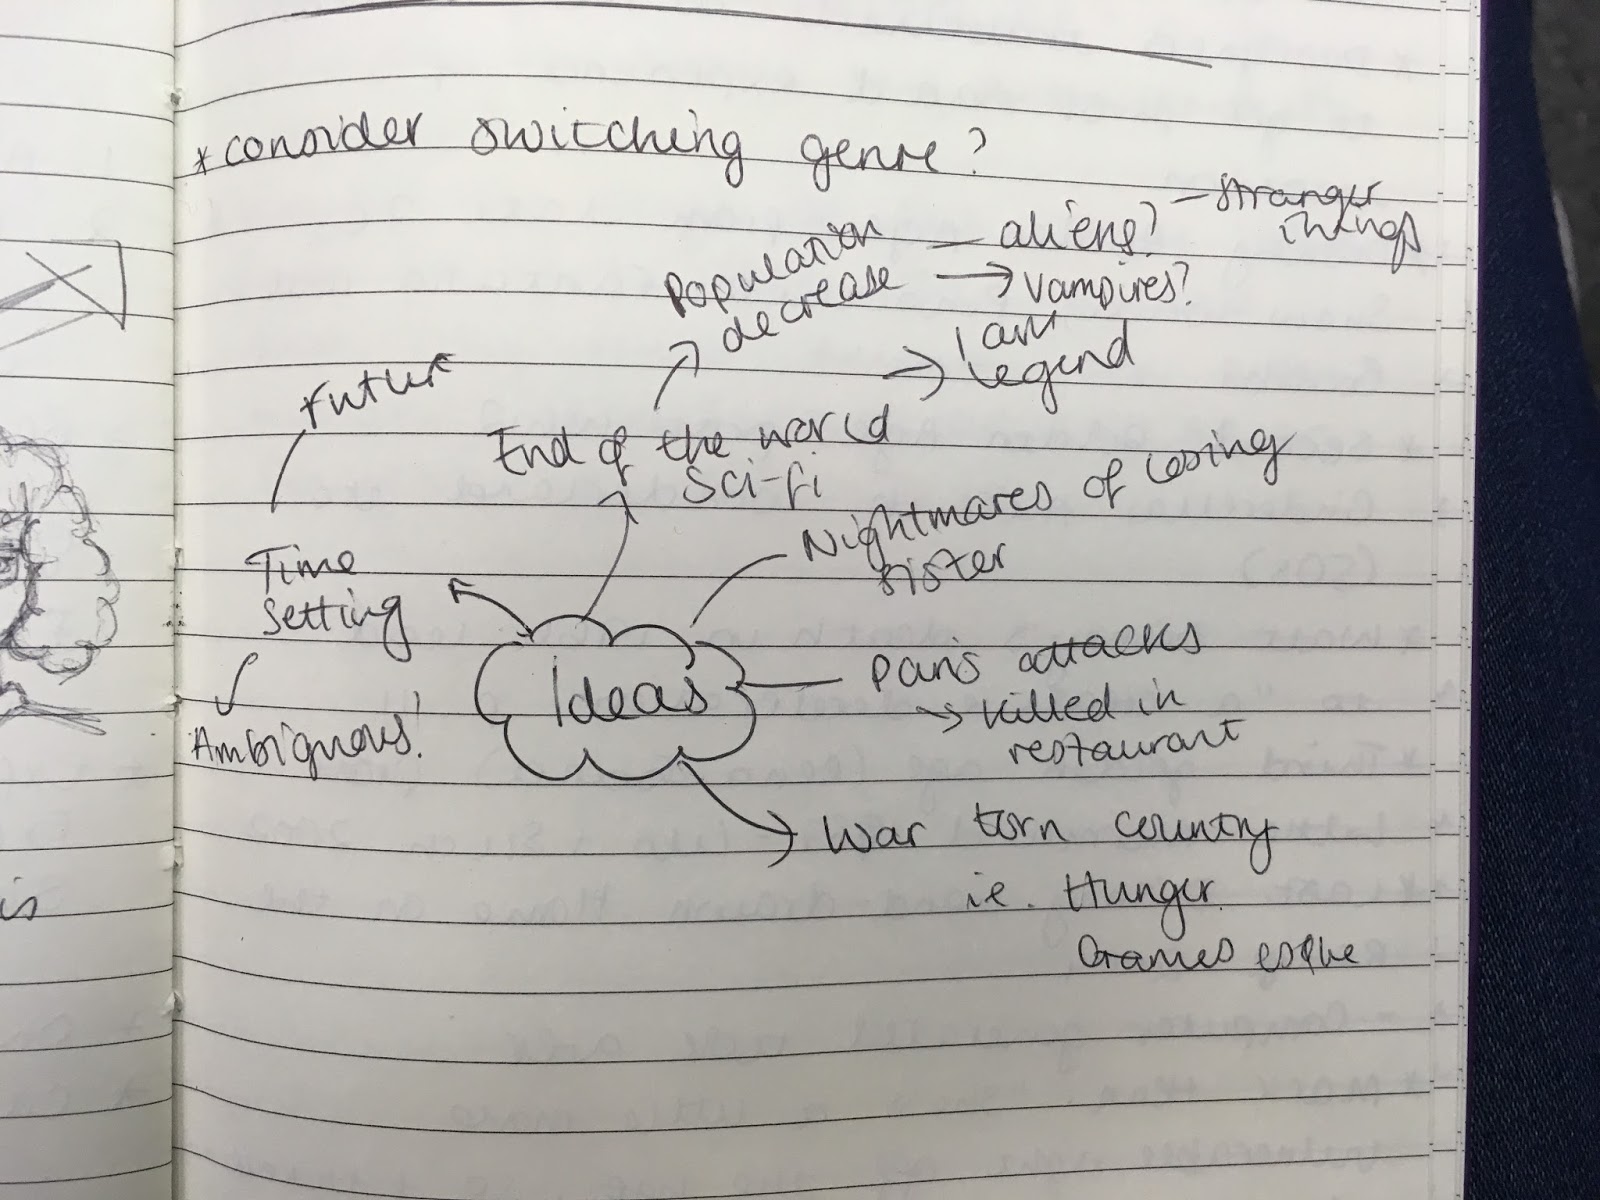 *consider switching genre?
Population
decrease
— aliens?
— Stranger
things
→ vampires?
→ I am
legend
Future
End of the world
Sci-fi
Nightmares of losing
sister
Time
setting
Ambiguous!
Ideas
Paris attacks
→ killed in
restaurant
War torn country
i.e. Hunger
Games esque
is